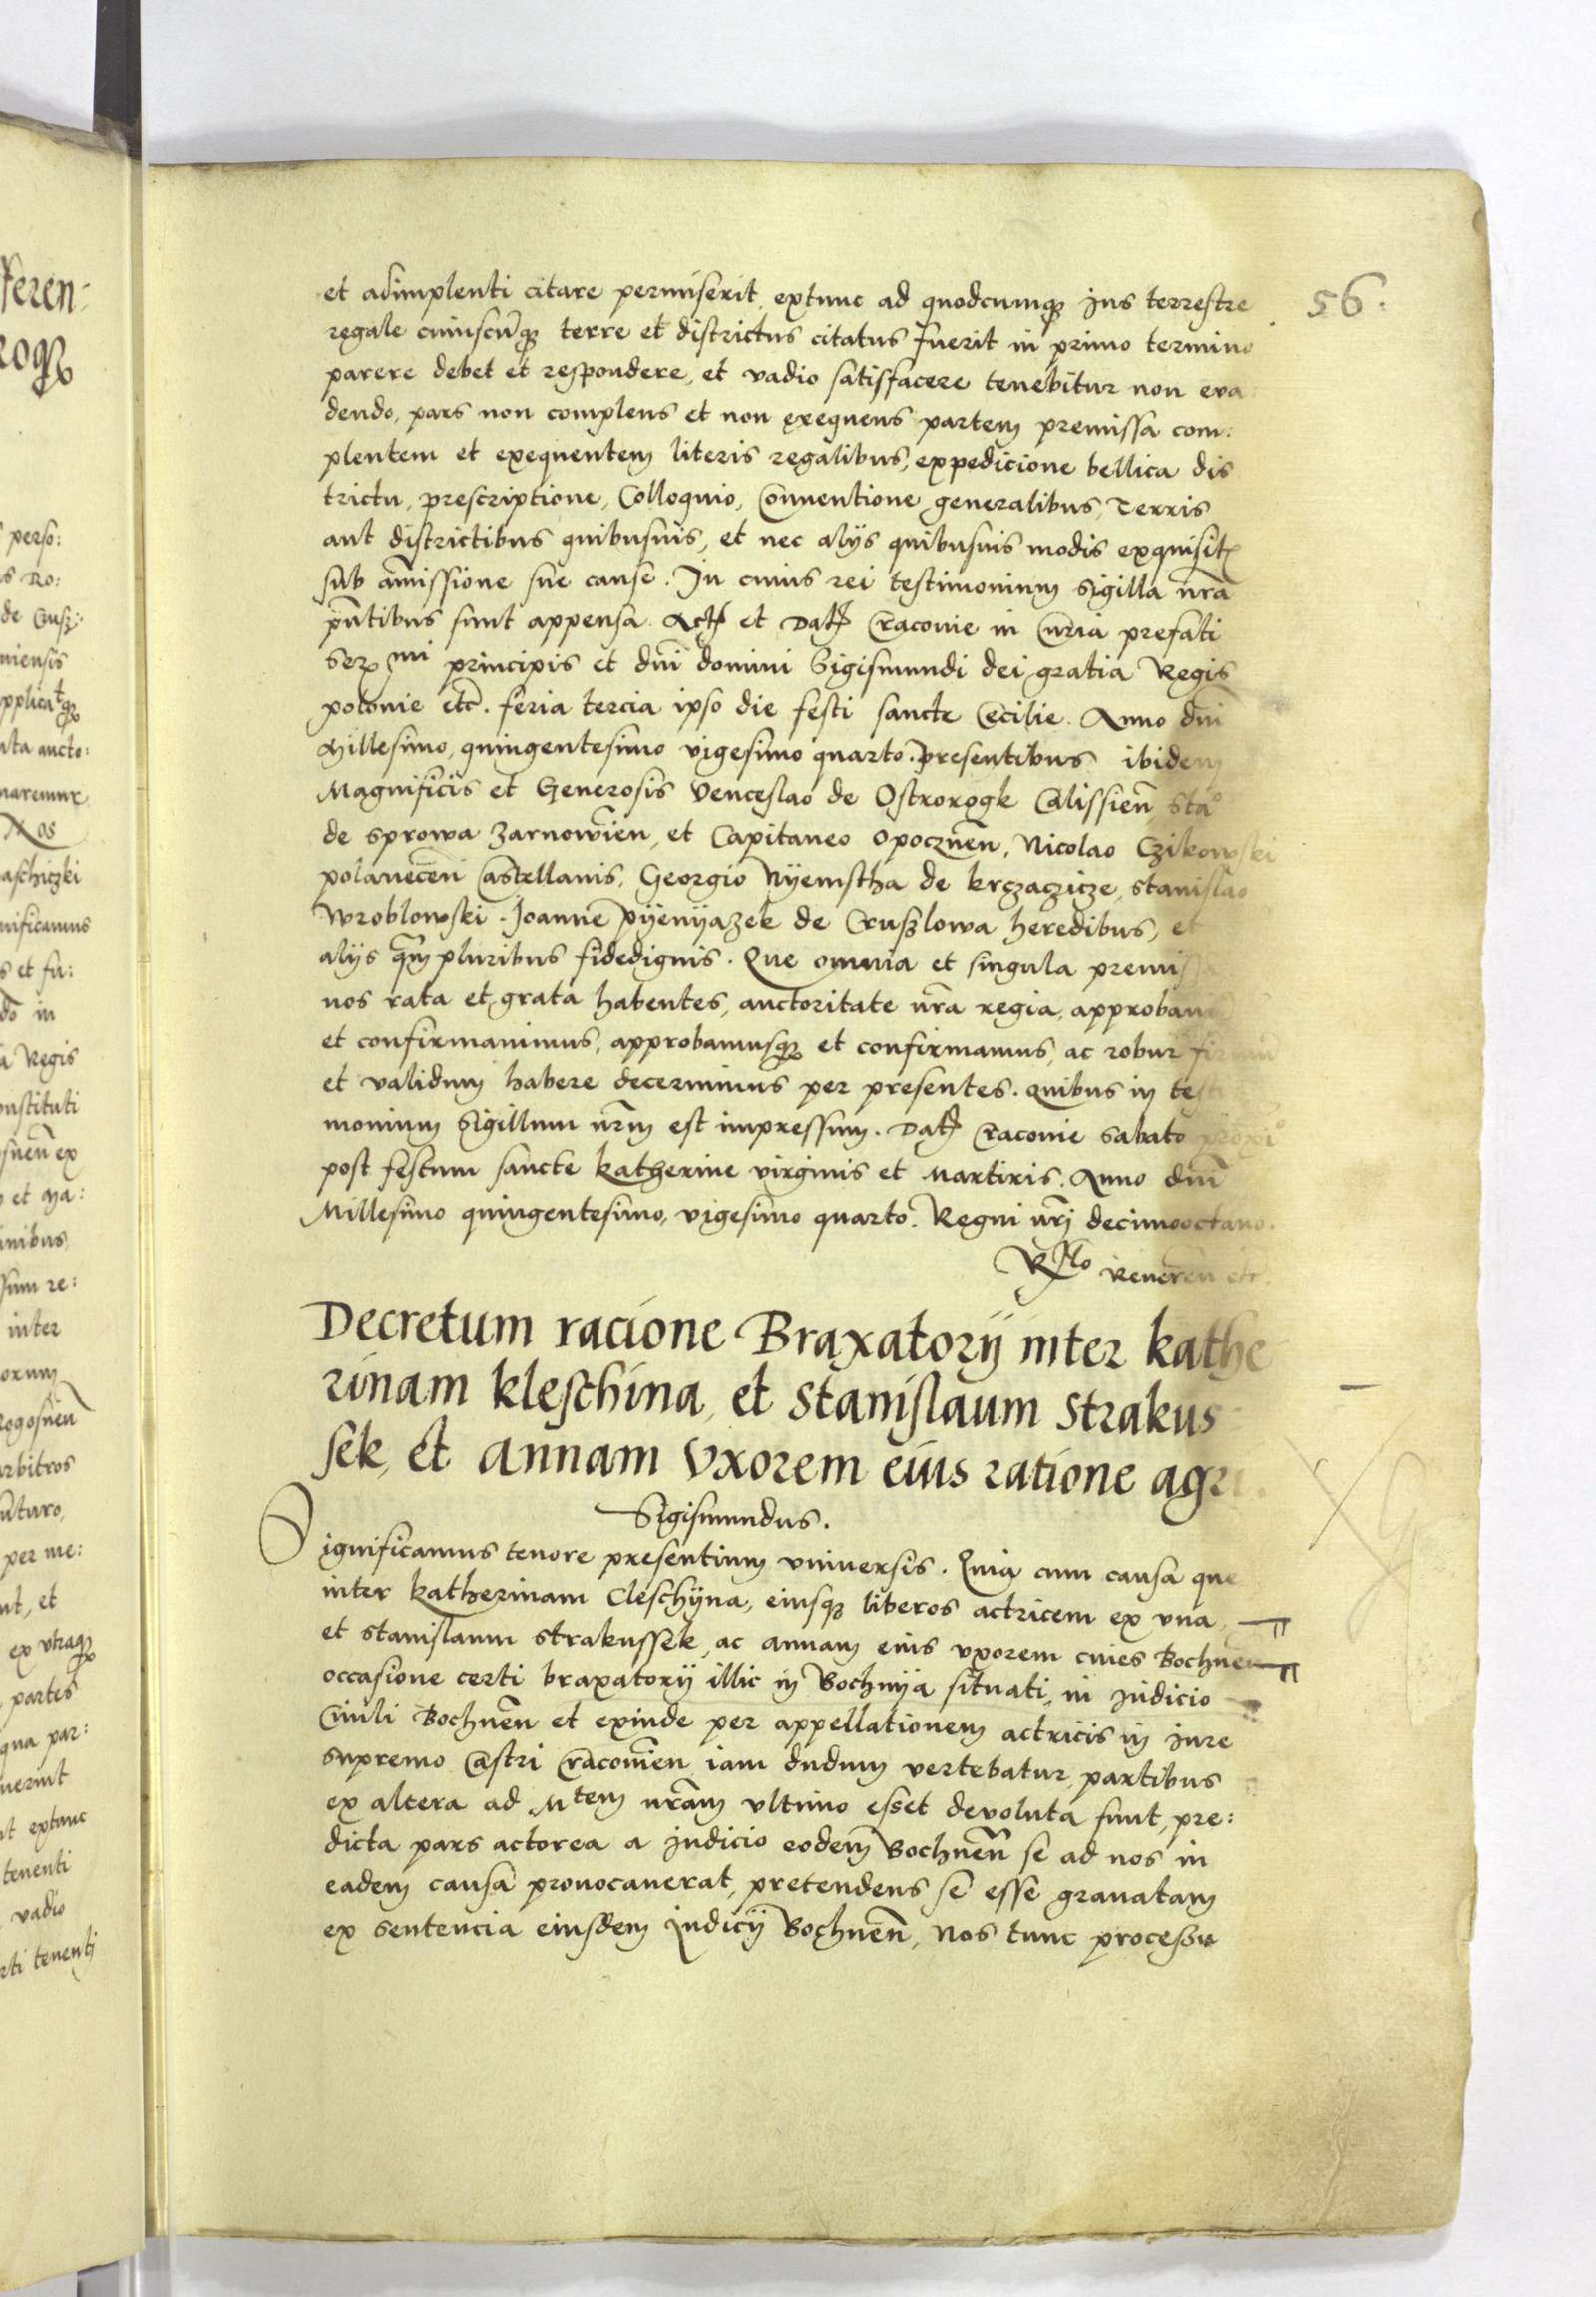 56.
et adimplenti citare permiserit, extunc ad quodcumqꝫ Jus terrestre
regale cuiuscũqꝫ terre et districtus citatus fuerit in primo termino
parere debet et respondere, et vadio satisfacere tenebitur non eua
dendo, pars non complens et non exequens partem premissa com:
plentem et exequentem literis regalibus, expedicione bellica dis
trictu, prescriptione, Colloquio, Conuentione generalibus, Terris
aut districtibus quibusuis, et nec alijs quibusuis modis exquisit
sub amissione sue cause. In cuius rei testimonium sigilla nr̃a
pñtibus sunt appensa. Act et Dat Cracouie in Curia prefati
Serᵐⁱ principis et dñi domini Sigismundi dei gratia Regis
polonie etc̃. feria tercia ipso die festi sancte Cecilie. Anno dñi
Millesimo, quingentesimo vigesimo quarto. presentibus ibidem
Magnificis et Generosis Venceslao de Ostrorogk Calissieñ, Sta°
de sprowa Zarnowieñ, et Capitaneo Opoczneñ, Nicolao Czikowski
polaneceñ Castellanis, Georgio Nÿemstha de krczaczicze, stanislao
Wroblowski. Joanne pÿenÿazek de Cruszlowa heredibus, et
alijs qm̃ pluribus fidedignis. Que omnia et singula premissa
nos rata et grata habentes, auctoritate nr̃a regia, approbaui
et confirmauimus, approbamusqꝫ et confirmamus, ac robur firmu
et validum habere decernimus per presentes. quibus in testi
monium Sigillum nr̃m est impressum. Dat Cracouie Sabato proxi°
post festum sancte katherine virginis et Martiris. Anno dñi
Millesimo quingentesimo, vigesimo quarto. Regni nr̃j decimooctauo.
Rᵐᵒ Reueren etc.
Decretum racione Braxatorij inter kathe
rinam kleschina, et Stanislaum Strakus
sek, et Annam Vxorem eius ratione agri.
Sigismundus.
Significamus tenore presentium vniuersis. Quia cum causa que
inter katherinam Cleschÿna, eiusqꝫ liberos actricem ex vna,
et stanislaum strakussek, ac annam eius vxorem ciues Bochneñ
occasione certi braxatorij illic in Bochnÿa situati, in Judicio
Ciuili Bochneñ et exinde per appellationem actricis in Jure
supremo Castri Cracouieñ iam dudum vertebatur, partibus
ex altera ad Mᵗᵉᵐ nr̃am vltimo esset deuoluta sunt, pre:
dicta pars actorea a Judicio eodem Bochneñ se ad nos in
eadem causa prouocauerat, pretendens se esse grauatam
ex sentencia eiusdem Judicij Bochneñ, Nos tunc processu